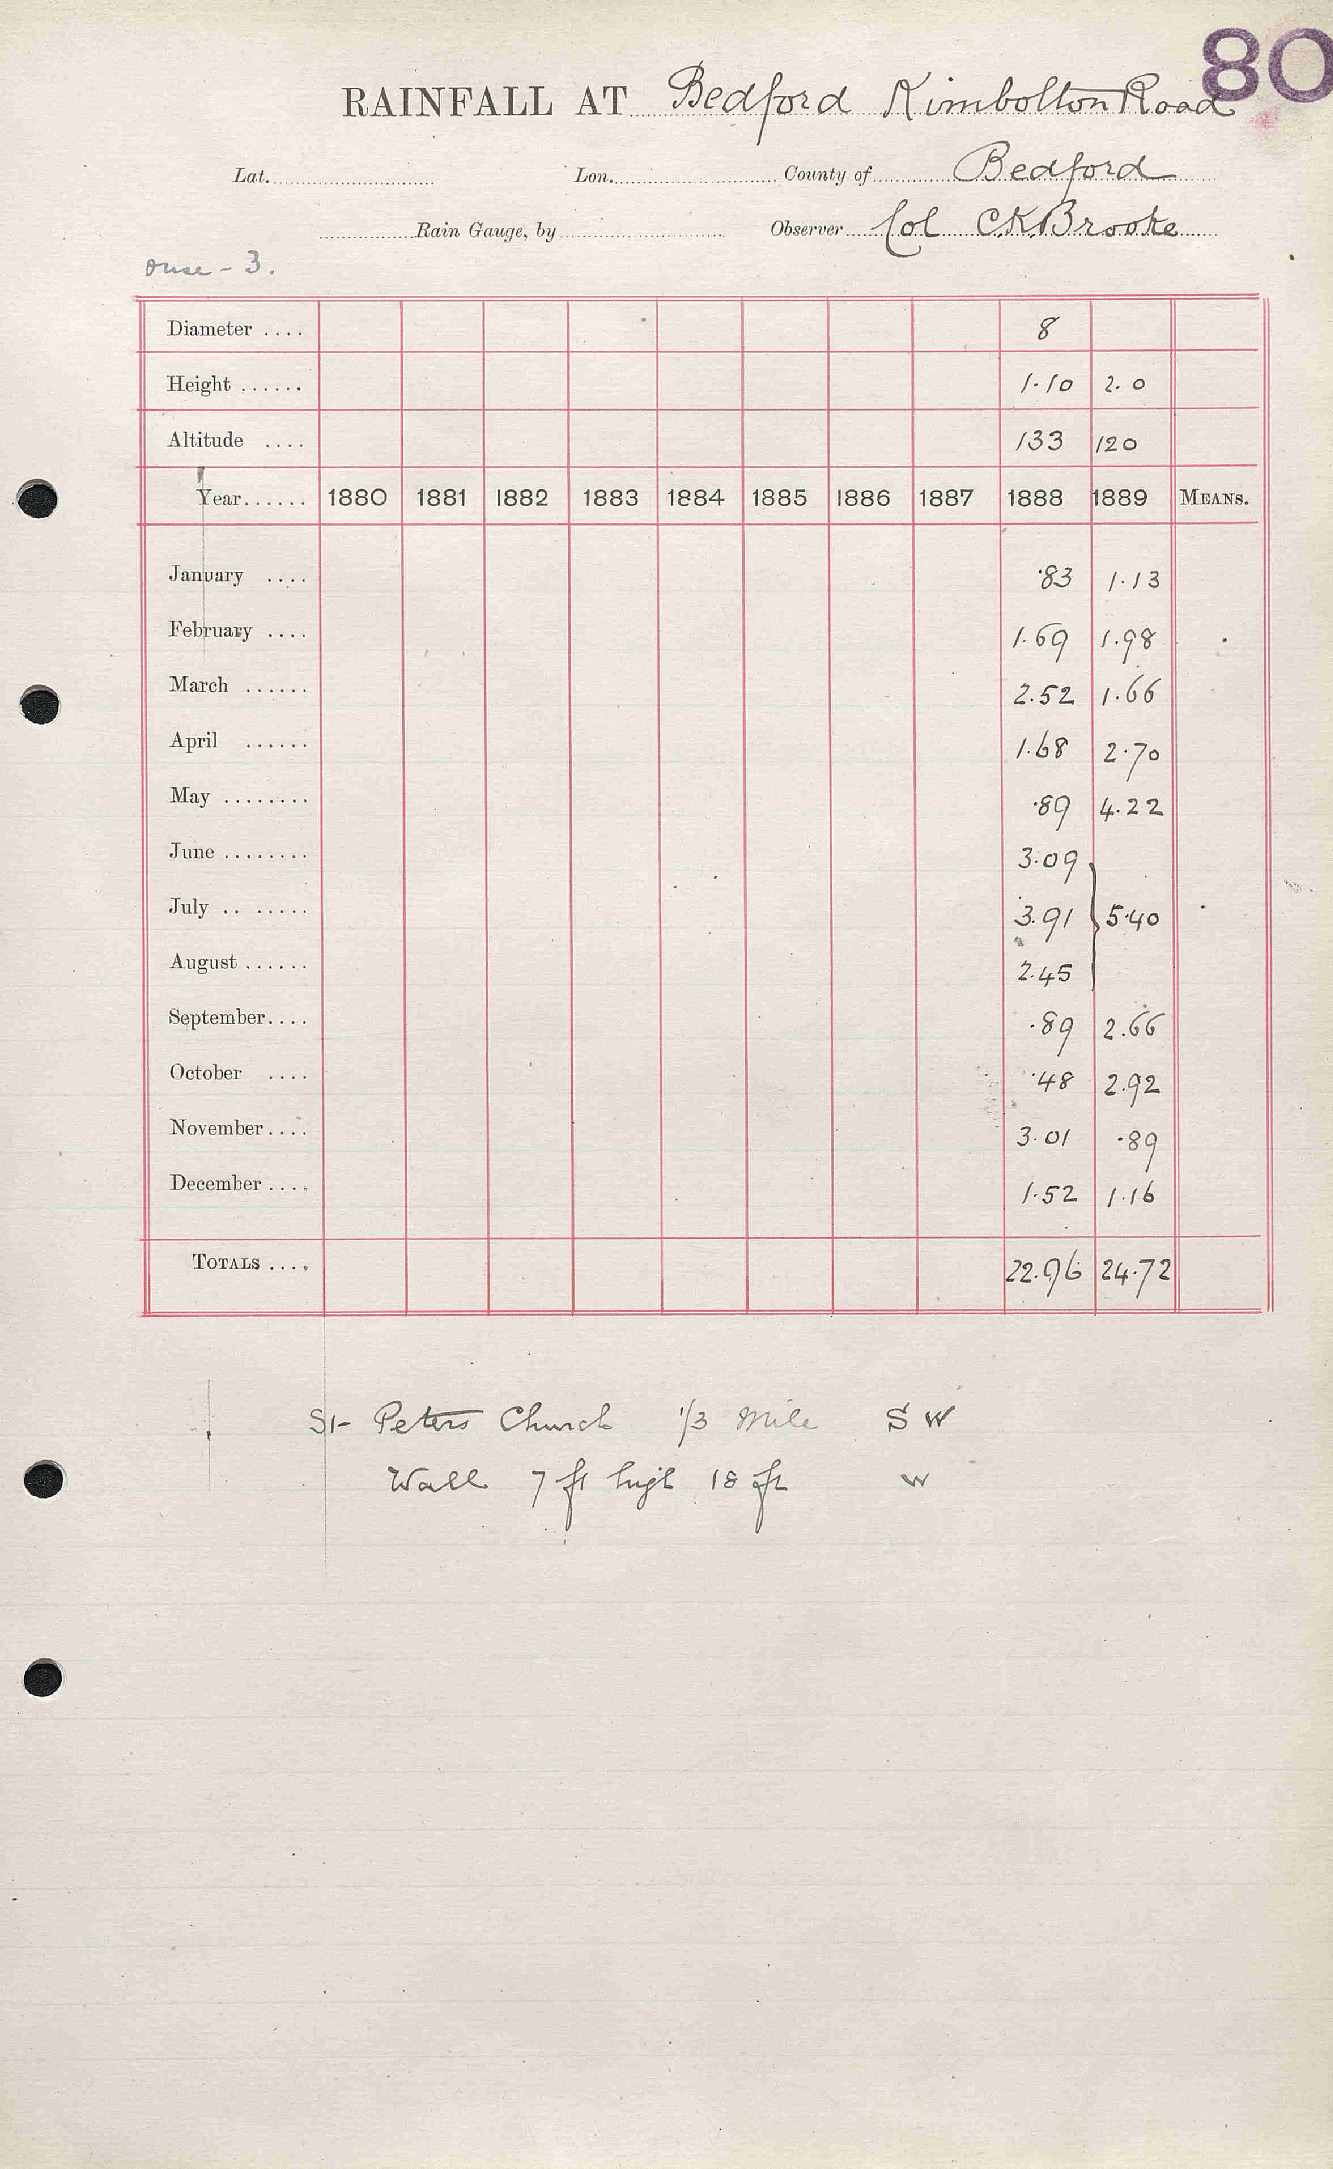 80
RAINFALL AT Bedford Kimbolton Road
Lat. Lon. County of Bedford
Rain Gauge, by Observer Col C.K.Brooke
Ouse - 3.
Diameter .... 8
Height ...... 1.10 2.0
Altitude .... 133 120
Year...... 1880 1881 1882 1883 1884 1885 1886 1887 1888 1889 MEANS.
January .... .83 1.13
February .... 1.69 1.98
March ...... 2.52 1.66
April ...... 1.68 2.70
May ........ .89 4.22
June ........ 3.09
July .. ..... 3.91 } 5.40
August ...... 2.45
September.... .89 2.66
October .... .48 2.92
November.... 3.01 .89
December .... 1.52 1.16
TOTALS .... 22.96 24.72
St- Peters Church 1/3 Mile S W
Wall 7 ft high 18 ft W